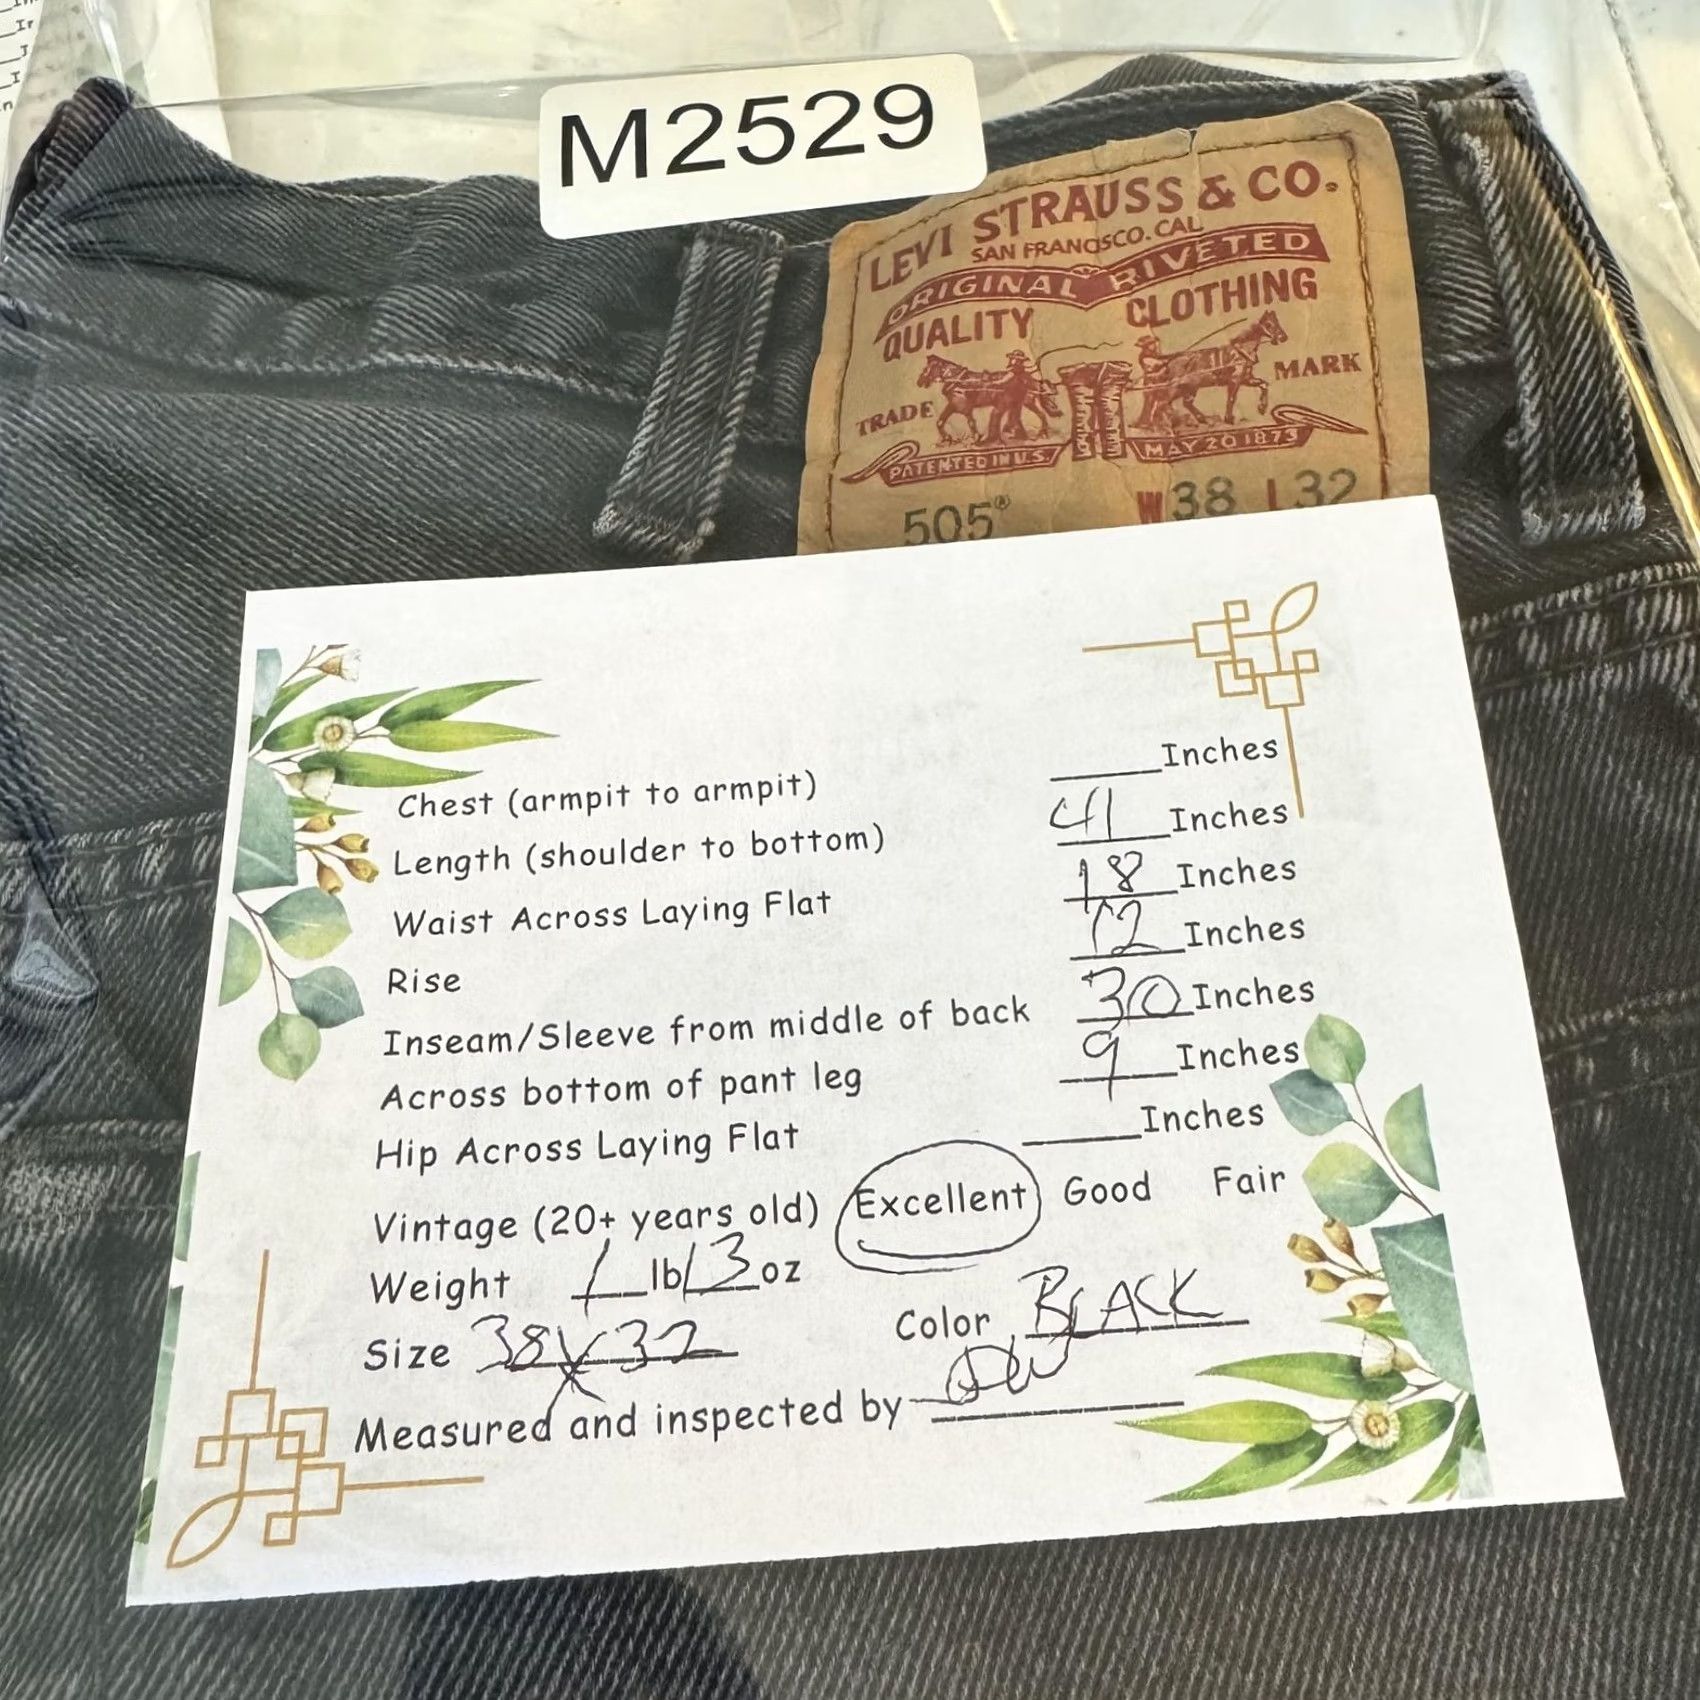 M2529
LEVI STRAUSS & CO.
SAN FRANCISCO. CAL
ORIGINAL RIVETED
QUALITY CLOTHING
TRADE MARK
PATENTED IN U.S. MAY 20 1873
505® W38 L32
Chest (armpit to armpit) _____Inches
Length (shoulder to bottom) 41 Inches
Waist Across Laying Flat 18 Inches
Rise 12 Inches
Inseam/Sleeve from middle of back 30 Inches
Across bottom of pant leg 9 Inches
Hip Across Laying Flat _____Inches
Vintage (20+ years old) Excellent Good Fair
Weight 1 lb 13 oz
Size 38x32 Color BLACK
Measured and inspected by